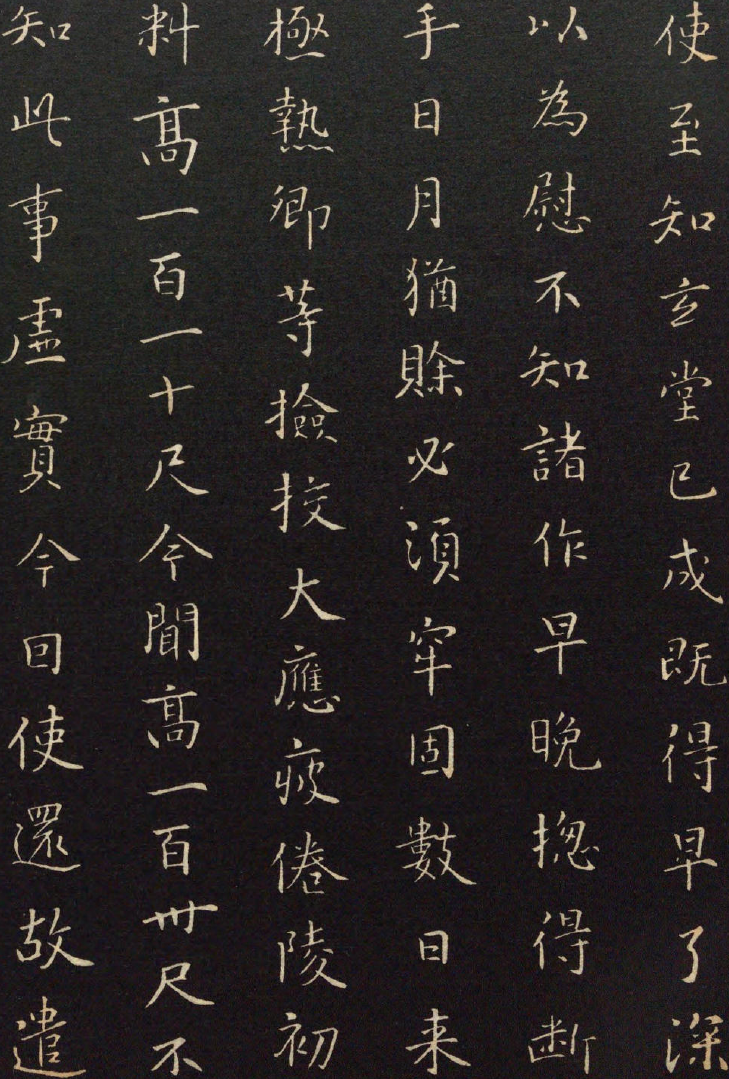 使至知玄堂已成既得早了深
以為慰不知諸作早晚揔得断
手日月猶賖必湏牢固數日来
極熱卿等撿挍大應疲倦陵初
料高一百一十尺今聞高一百卅尺不
知此事虛實今回使還故遣